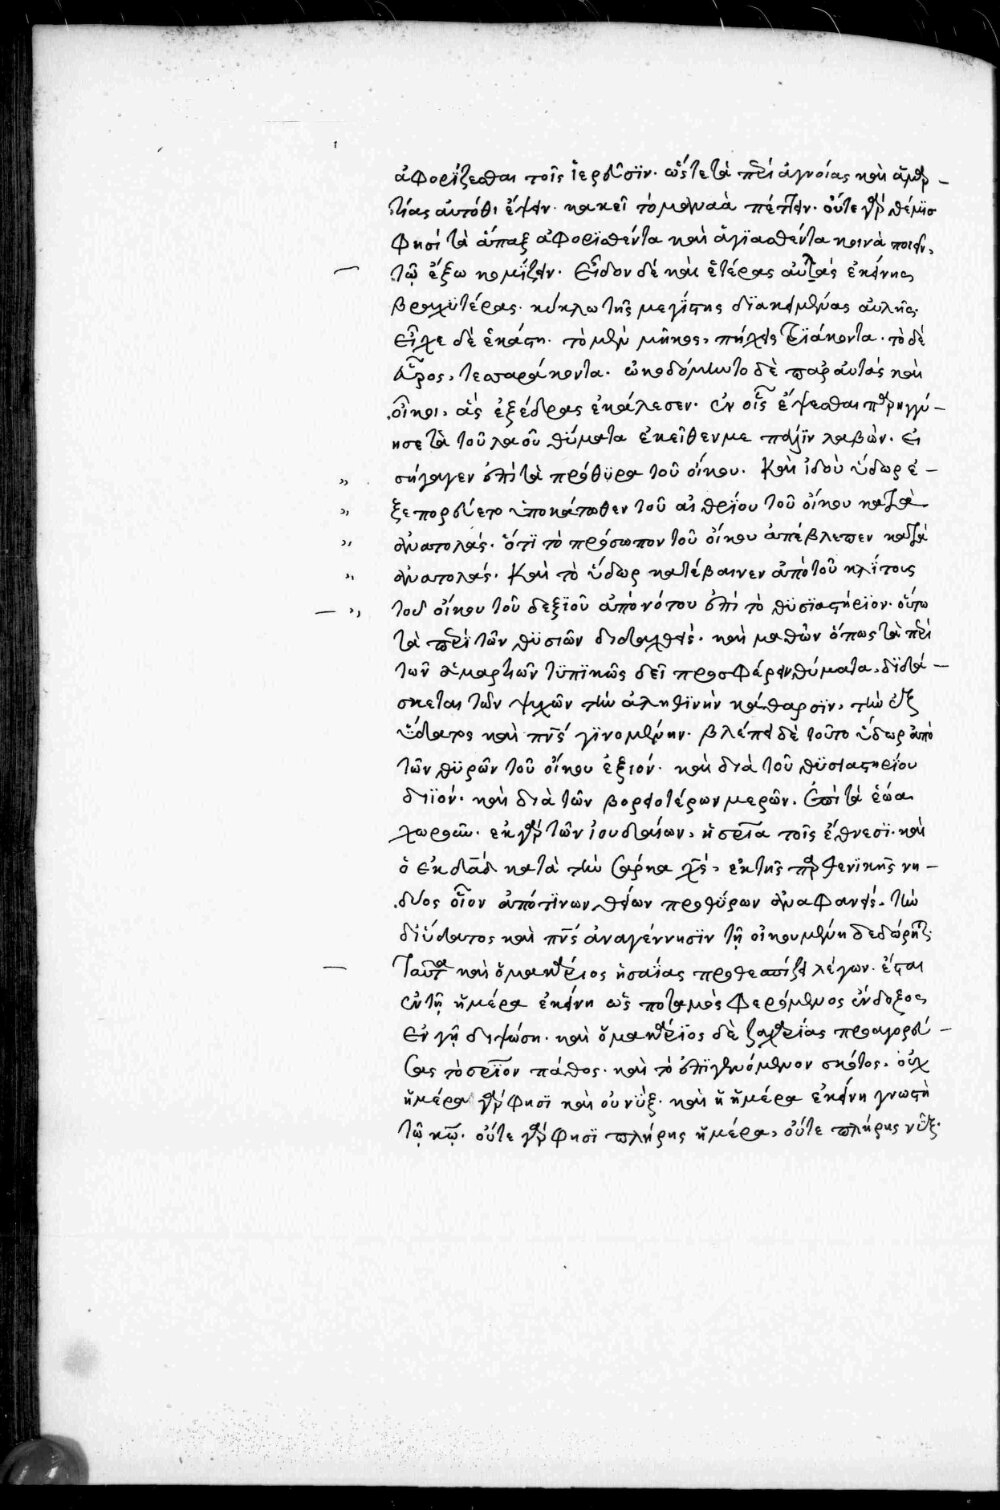 ἀφορίζεσθαι τοῖς ἱερεῦσϊν· ὥστε τὰ περὶ ἀγνοίας καὶ ἁμαρ-
τίας αὐτόθι ἕψειν· κἀκεῖ τὸ μαναὰ πέπτειν· οὔτε γὰρ θέμϊσ
φησὶ τὰ ἅπαξ ἀφορϊσθέντα καὶ ἁγϊασθέντα κοινὰ ποιεῖν,
τῷ ἔξω κομίζειν· Εἶδον δὲ καὶ ἑτέρας αὐλὰς ἐκείνης
βραχϋτέρας· κύκλω τῆς μεγίστης δϊακειμένας αὐλῆς·
Εἶχε δὲ ἑκάστη· τὸ μὲν μῆκος, πήχεις τριάκοντα· τὸ δὲ
εὖρος, τεσσαράκοντα· ὠκοδόμηντο δὲ παρ αὐτὰς καὶ
οἶκοι, ἃς ἐξέδρας ἐκάλεσεν· ἐν οἷς ἕψεσθαι παρηγγύ-
ησε τὰ τοῦ λαοῦ θύματα ἐκεῖθεν με πάλϊν λαβὼν· Εἰ
σήγαγεν ἐπὶ τὰ πρόθϋρα τοῦ οἴκου· Καὶ ἰδοὺ ὕδωρ ἐ-
ξεπορεύετο ὑποκάτωθεν τοῦ αἰθρίου τοῦ οἴκου κατὰ
ἀνατολάς· ὅτϊ τὸ πρόσωπον τοῦ οἴκου ἀπέβλεπεν κατὰ
ἀνατολάς· Καὶ τὸ ὕδωρ κατέβαινεν ἀπὸ τοῦ κλίτους
τοῦ οἴκου τοῦ δεξϊοῦ ἀπὸ νότου ἐπὶ τὸ θϋσϊαστήρϊον· οὕτω
τὰ περὶ τῶν θϋσϊῶν διδαχθεὶς· καὶ μαθὼν ὅπως τὰ περὶ
τῶν ἁμαρτιῶν τϋπϊκῶς δεῖ προσφέρειν θύματα, δϊδά-
σκεται τῶν ψυχῶν τὴν ἀληθϊνὴν κάθαρσϊν, τὴν ἐξ
ὕδατος καὶ πνς γϊνομένην· βλέπει δὲ τοῦτο ὕδωρ ἀπὸ
τῶν θϋρῶν τοῦ οἴκου ἐξϊόν· καὶ διὰ τοῦ θϋσιαστηρίου
διϊόν· καὶ διὰ τῶν βορειοτέρων μερῶν· Ἐπὶ τὰ ἑῶα
χωροῦν· ἐκ γὰρ τῶν ἰουδαίων, ἡ σρία τοῖς ἔθνεσϊ· καὶ
ὁ ἐκ δαδ κατὰ τὴν σάρκα χς, ἐκ τῆς παρθενϊκῆς νη-
δύος οἷον ἀπό τϊνων θείων προθύρων ἀναφανεὶς· τὴν
δι ὕδατος καὶ πνς ἀναγέννησϊν τῇ οἰκουμένη δεδώρηται·
Ταῦτα καὶ ὁ μακάριος ἡσαΐας προθεσπίζει λέγων· ἔσται
ἐν τῇ ἡμέρα ἐκείνη ὡς ποταμὸς φερόμενος ἔνδοξος
ἐν γῇ διψώση· καὶ ὁ μακάριος δὲ ζαχαρίας προαγορεύ-
σας τὸ σρϊον πάθος· καὶ τὸ ἐπϊγενόμενον σκότος· οὐχ
ἡμέρα γὰρ φησϊ καὶ οὐ νϋξ· καὶ ἡ ἡμέρα ἐκείνη γνωστὴ
τῷ κω· οὔτε γὰρ φησϊ πλήρης ἡμέρα, οὔτε πλήρης νύξ·